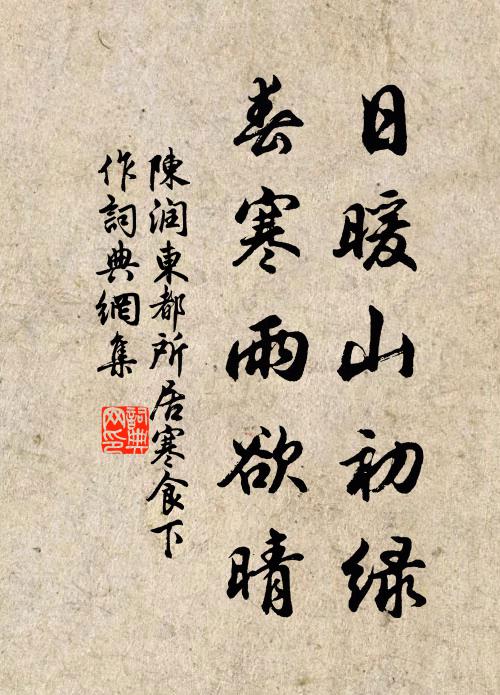 日暖山初绿
春寒雨欲晴
陳润東都所居寒食下
作詞典網集
詞典
网印